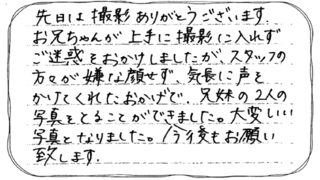 先日は撮影ありがとうございます.
お兄ちゃんが上手に撮影に入れず
ご迷惑をおかけしましたが、スタッフの
方々が嫌な顔せず、気長に声を
かけてくれたおかげで、兄妹の2人の
写真をとることができました。大変いい
写真となりました。今後もお願い
致します.